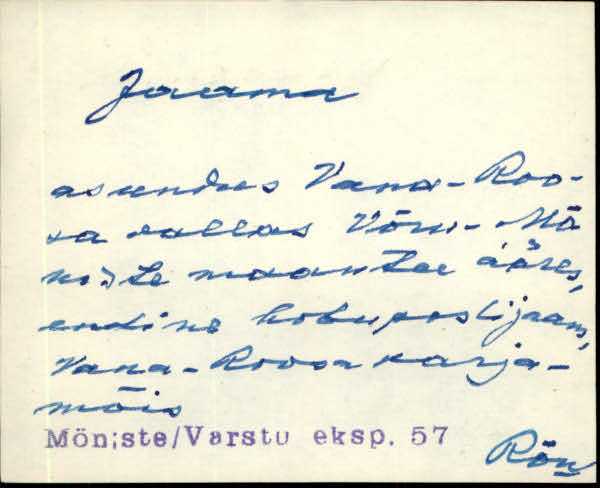 Jaama
asundus Vana-Roo-
sa vallas Võru-Mõ
niste maantee ääres,
endine hobupostijaam,
Vana-Roosa karja-
mõis
Mön;ste/Varstu eksp. 57
Rõu